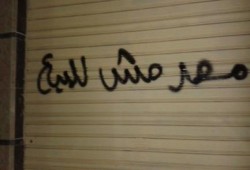 مصر مش للبيع